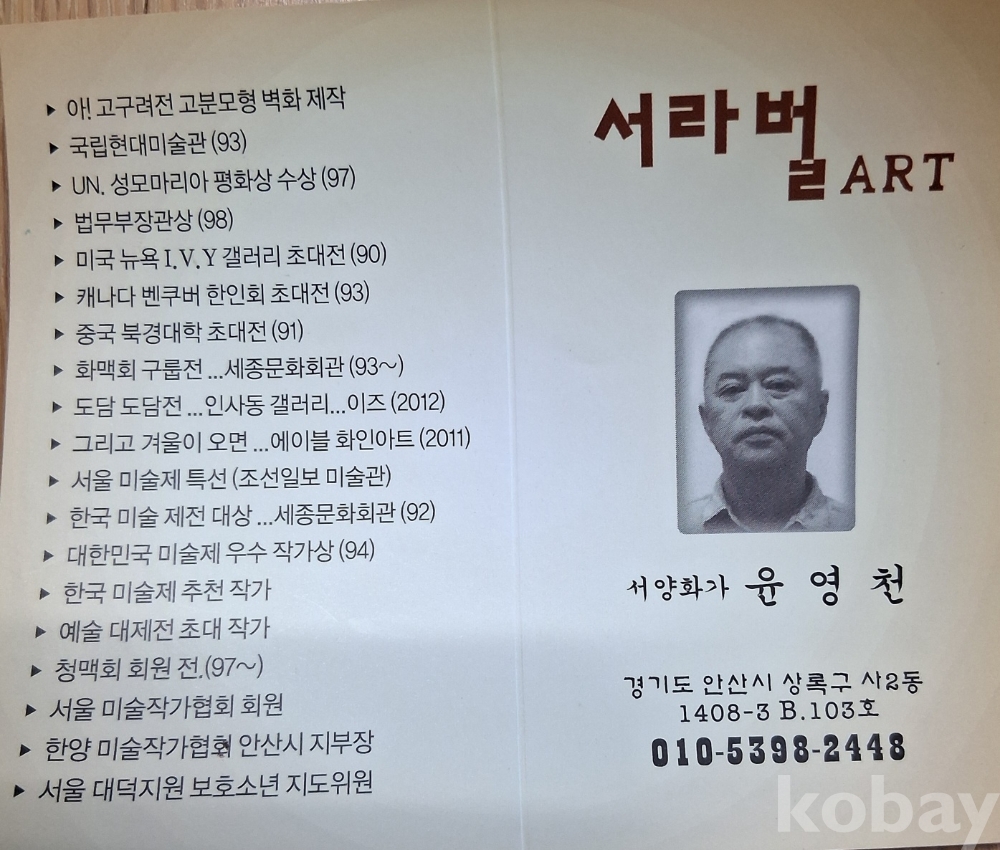 ▶ 아! 고구려전 고분모형 벽화 제작
▶ 국립현대미술관 (93)
▶ UN. 성모마리아 평화상 수상 (97)
▶ 법무부장관상 (98)
▶ 미국 뉴욕 I.V.Y 갤러리 초대전 (90)
▶ 캐나다 벤쿠버 한인회 초대전 (93)
▶ 중국 북경대학 초대전 (91)
▶ 화맥회 구룹전 ...세종문화회관 (93~)
▶ 도담 도담전 ...인사동 갤러리...이즈 (2012)
▶ 그리고 겨울이 오면 ...에이블 화인아트 (2011)
▶ 서울 미술제 특선 (조선일보 미술관)
▶ 한국 미술 제전 대상 ...세종문화회관 (92)
▶ 대한민국 미술제 우수 작가상 (94)
▶ 한국 미술제 추천 작가
▶ 예술 대제전 초대 작가
▶ 청맥회 회원 전.(97~)
▶ 서울 미술작가협회 회원
▶ 한양 미술작가협회 안산시 지부장
▶ 서울 대덕지원 보호소년 지도위원
서라벌 ART
서양화가 윤영천
경기도 안산시 상록구 사2동
1408-3 B.103호
010-5398-2448
kobay